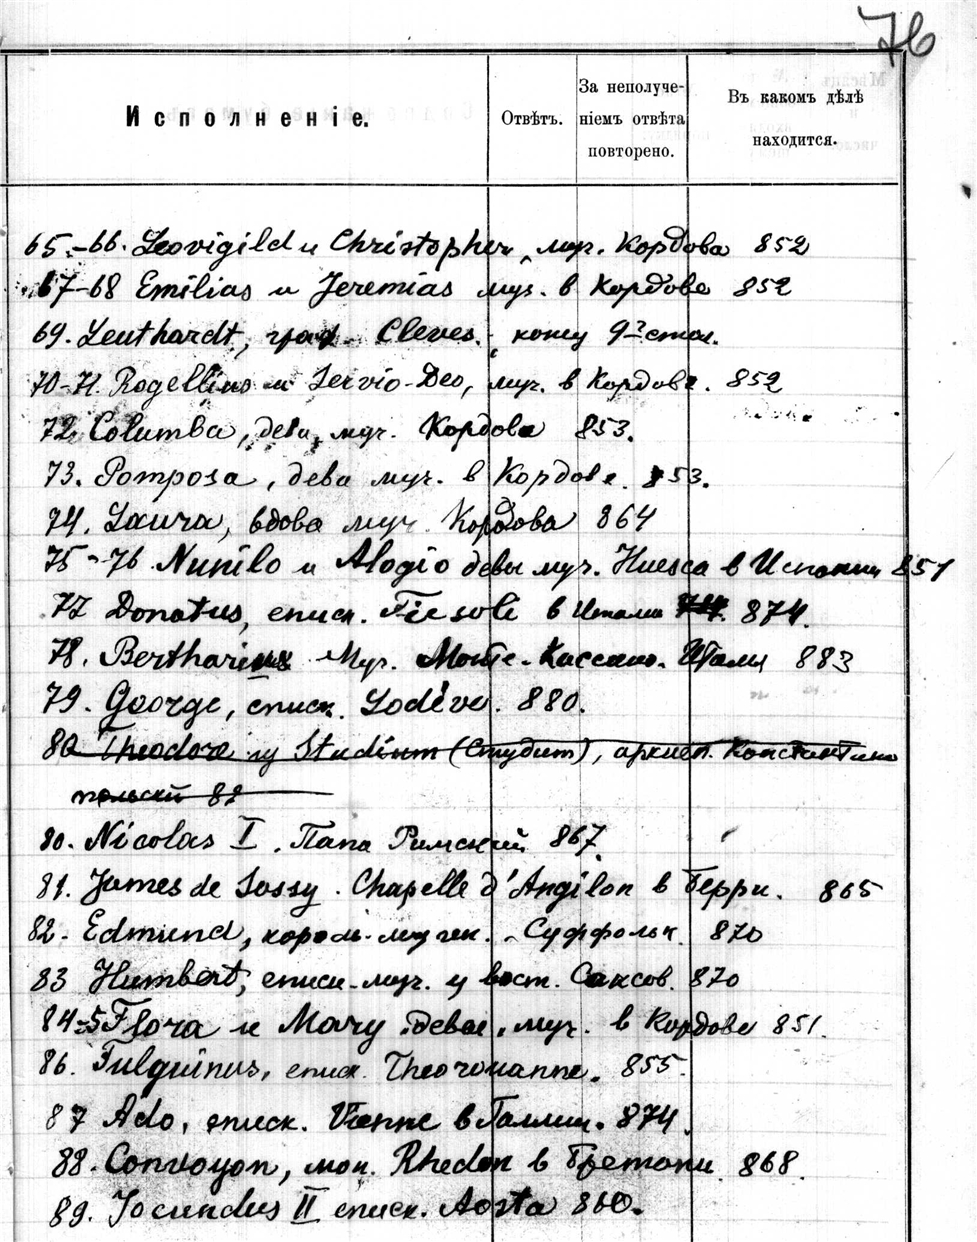 76
Исполненіе.
Отвѣтъ.
За неполуче-
ніемъ отвѣта
повторено.
Въ какомъ дѣлѣ
находится.
65-66. Leovigild и Christopher, муч. Кордова 852
67-68 Emilias и Jeremias муч. в Кордове 852
69. Leuthardt, граф Cleves. конец 9го стол.
70-71. Rogellius и Servio-Deo, муч. в Кордове. 852
72. Columba, дева, муч. Кордова 853.
73. Pomposa, дева муч. в Кордове. 853.
74. Laura, вдова муч. Кордова 864
75-76 Nunilo и Alogio девы муч. Huesca в Испании 851
77 Donatus, еписк. Fiesole в Италии 874.
78. Bertharius Муч. Монте-Кассино. Италия 883
79. George, еписк. Lodève. 880.
80 Theodore Studium (Студит), архиеп. Константино
польский 82
80. Nicolas I. Папа Римский 867.
81. James de Sassy. Chapelle d'Angilon в Берри. 865
82. Edmund, король-мучен. Суффольк. 870
83 Humbert, еписк.-муч. у вост. Саксов. 870
84-5 Flora и Mary девы, муч. в Кордове 851.
86. Fulquinus, еписк. Theorouanne. 855.
87 Ado, еписк. Vienne в Галлии. 874.
88. Convoyon, мон. Rhedon в Бретани 868.
89. Jocundus II еписк. Aosta 860.